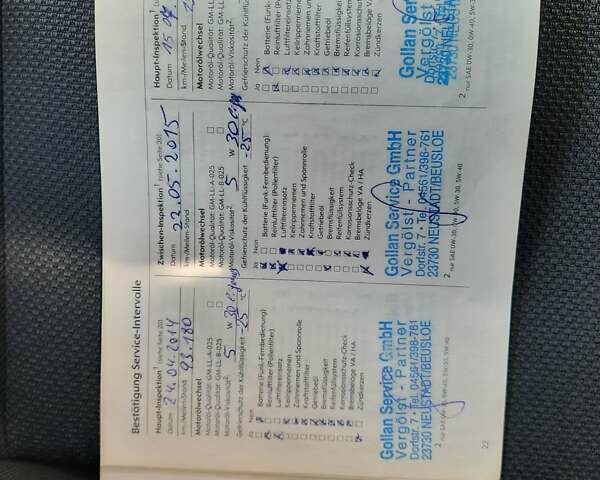 Bestätigung Service-Intervalle
Haupt-Inspektion¹ (siehe Seite 20)
Datum 24.04.2014
km/Meilen-Stand 93.180
Motorölwechsel
Motoröl-Qualität: GM-LL-A-025
Motoröl-Qualität: GM-LL-B-025
Motoröl-Viskosität² 5 W 30
Gefrierschutz der Kühlflüssigkeit -25 °C
Ja Nein
Batterie (Funk-Fernbedienung)
Reinluftfilter (Pollenfilter)
Luftfiltereinsatz
Keilrippenriemen
Zahnriemen und Spannrolle
Kraftstofffilter
Getriebeöl
Bremsflüssigkeit
Reifenfüllsystem
Korrosionsschutz-Check
Bremsbeläge VA / HA
Zündkerzen
Gollan Service GmbH
Vergölst - Partner
Dorfstr. 7 • Tel. 04561/398-761
23730 NEUSTADT/BEUSLOE
² nur SAE 0W-30, 0W-40, 5W-30, 5W-40
22
Zwischen-Inspektion¹ (siehe Seite 20)
Datum 22.05.2015
km/Meilen-Stand
Motorölwechsel
Motoröl-Qualität: GM-LL-A-025
Motoröl-Qualität: GM-LL-B-025
Motoröl-Viskosität² 5 W 30
Gefrierschutz der Kühlflüssigkeit -25 °C
Ja Nein
Batterie (Funk-Fernbedienung)
Reinluftfilter (Pollenfilter)
Luftfiltereinsatz
Keilrippenriemen
Zahnriemen und Spannrolle
Kraftstofffilter
Getriebeöl
Bremsflüssigkeit
Reifenfüllsystem
Korrosionsschutz-Check
Bremsbeläge VA / HA
Zündkerzen
Gollan Service GmbH
Vergölst - Partner
Dorfstr. 7 • Tel. 04561/398-761
23730 NEUSTADT/BEUSLOE
² nur SAE 0W-30, 0W-40, 5W-30, 5W-40
Haupt-Inspektion¹
Datum 15.
km/Meilen-Stand
Motorölwechsel
Motoröl-Qualität: GM-LL
Motoröl-Qualität: GM-LL
Motoröl-Viskosität²
Gefrierschutz der Kühlflüs
Ja Nein
Batterie (Funk
Reinluftfilter (P
Luftfiltereinsatz
Keilrippenriemen
Zahnriemen un
Kraftstofffilter
Getriebeöl
Bremsflüssigkeit
Reifenfüllsystem
Korrosionsschu
Bremsbeläge VA
Zündkerzen
Gollan Serv
Vergölst
Dorfstr.
23730 NEUSTA
² nur SAE 0W-30, 0W